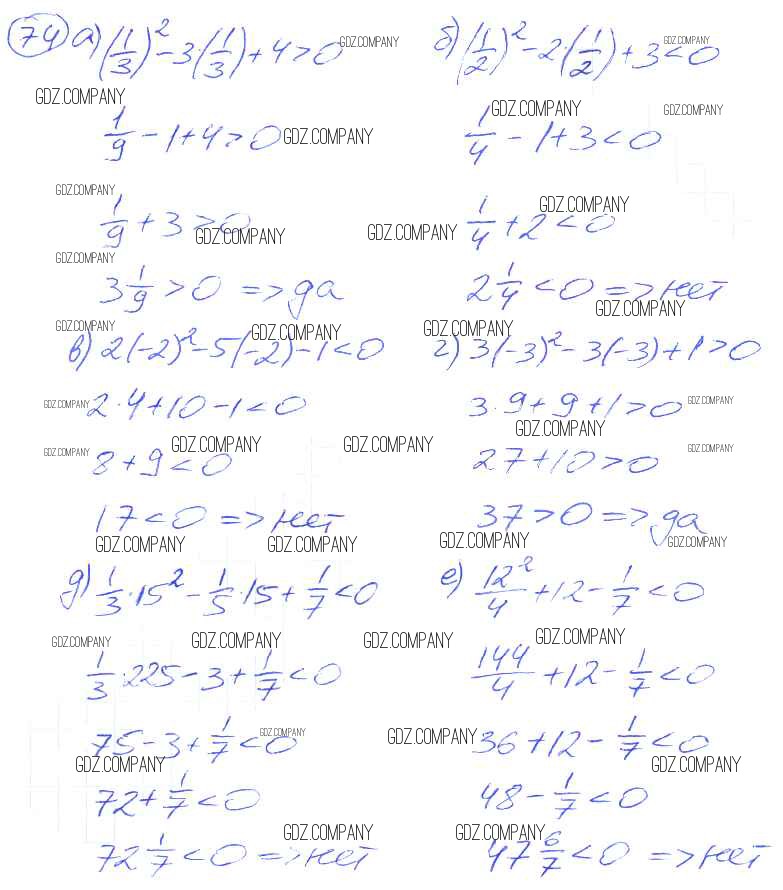 74 а) (1/3)² - 3·(1/3) + 4 > 0 GDZ.COMPANY
б) (1/2)² - 2(1/2) + 3 < 0 GDZ.COMPANY
GDZ.COMPANY GDZ.COMPANY GDZ.COMPANY
1/9 - 1 + 4 > 0 GDZ.COMPANY
1/4 - 1 + 3 < 0
GDZ.COMPANY GDZ.COMPANY
1/9 + 3 > 0 GDZ.COMPANY GDZ.COMPANY
1/4 + 2 < 0
GDZ.COMPANY
3 1/9 > 0 => да
2 1/4 < 0 => нет
GDZ.COMPANY
GDZ.COMPANY GDZ.COMPANY GDZ.COMPANY
в) 2(-2)² - 5(-2) - 1 < 0
г) 3(-3)² - 3(-3) + 1 > 0
GDZ.COMPANY 2·4 + 10 - 1 < 0
3·9 + 9 + 1 > 0 GDZ.COMPANY
GDZ.COMPANY
GDZ.COMPANY GDZ.COMPANY GDZ.COMPANY GDZ.COMPANY
8 + 9 < 0
27 + 10 > 0
17 < 0 => нет
37 > 0 => да
GDZ.COMPANY GDZ.COMPANY GDZ.COMPANY GDZ.COMPANY
д) 1/3·15² - 1/5·15 + 1/7 < 0
е) 12²/4 + 12 - 1/7 < 0
GDZ.COMPANY GDZ.COMPANY GDZ.COMPANY GDZ.COMPANY
1/3·225 - 3 + 1/7 < 0
144/4 + 12 - 1/7 < 0
75 - 3 + 1/7 < 0 GDZ.COMPANY
GDZ.COMPANY 36 + 12 - 1/7 < 0
GDZ.COMPANY GDZ.COMPANY
72 + 1/7 < 0
48 - 1/7 < 0
GDZ.COMPANY GDZ.COMPANY
72 1/7 < 0 => нет
47 6/7 < 0 => нет